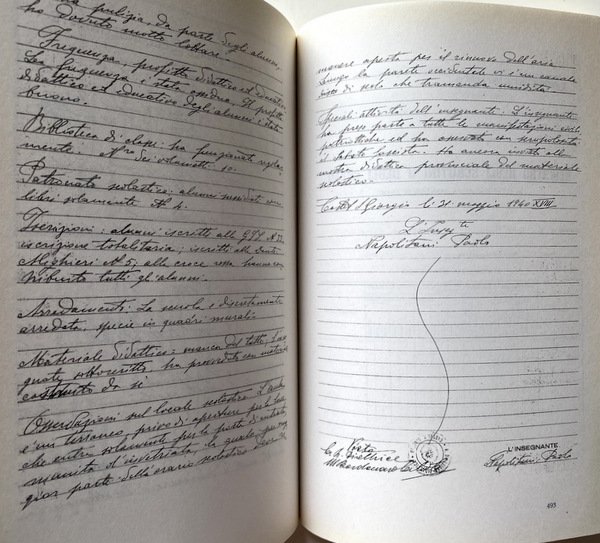 pulizia, da parte degli alunni,
ha dovuto molto lottare.
Frequenza, profitto didattico ed educativo
La frequenza è stata Il profitto
didattico ed educativo degli alunni è stato
buono.
Biblioteca di classe: ha funzionato regolar
mente. N° dei volumetti 10.
Patronato scolastico: alunni
libri solamente N. 4.
Iscrizioni: alunni iscritti alla G.I.L. N. 33
iscrizione totalitaria; iscritti alla Dante
Alighieri N. 5; alla croce rossa hanno con
tribuito tutti gli alunni.
Arredamento: La scuola è discretamente
arredata, specie in quadri murali.
Materiale didattico: manca del tutto. L'inse
gnante sottoscritto ha provveduto con materiale
costruito da sé
Osservazioni sul locale scolastico. L'aula
è un terraneo, privo di aperture per la luce
che entra solamente per la porta d'entrata
munita d'invetriata, la quale per
gior parte dell'orario scolastico deve ri
manere aperta per il rinnovo dell'aria.
Lungo la parete occidentale vi è un canale
di scolo che tramanda umidità.
Speciali attività dell'insegnante: L'insegnante
ha preso parte a tutte le manifestazioni civili
patriottiche, ed ha
il sabato fascista. Ha ancora inviato alla
mostra didattica provinciale del materiale
scolastico.
Castel S. Giorgio li 21 maggio 1940 XVIII.
L'Insegte
Napolitani Paolo
Visto
La Direttrice
L'INSEGNANTE
Napolitani Paolo
493